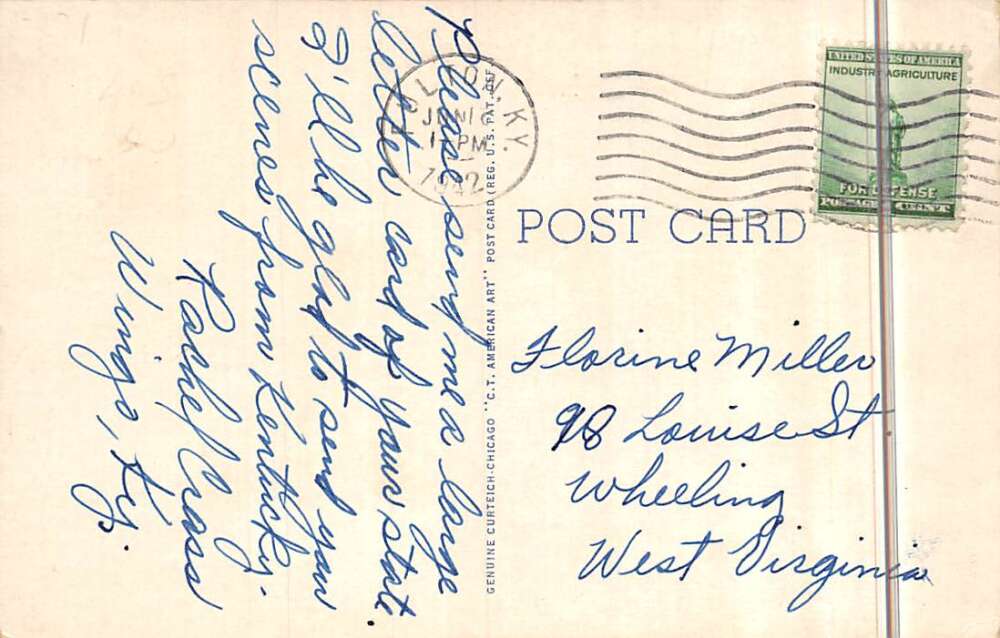 Please send me a large
letter card of your state.
I'll be glad to send you
scenes from Kentucky.
Rachel Crass
Wingo, Ky.
FULTON, KY.
JUN
PM
1942
UNITED STATES OF AMERICA
INDUSTRY AGRICULTURE
FOR DEFENSE
POSTAGE 1 CENT
GENUINE CURTEICH-CHICAGO "C.T. AMERICAN ART" POST CARD (REG. U.S. PAT. OFF.
POST CARD
Florine Miller
98 Louise St
Wheeling
West Virginia